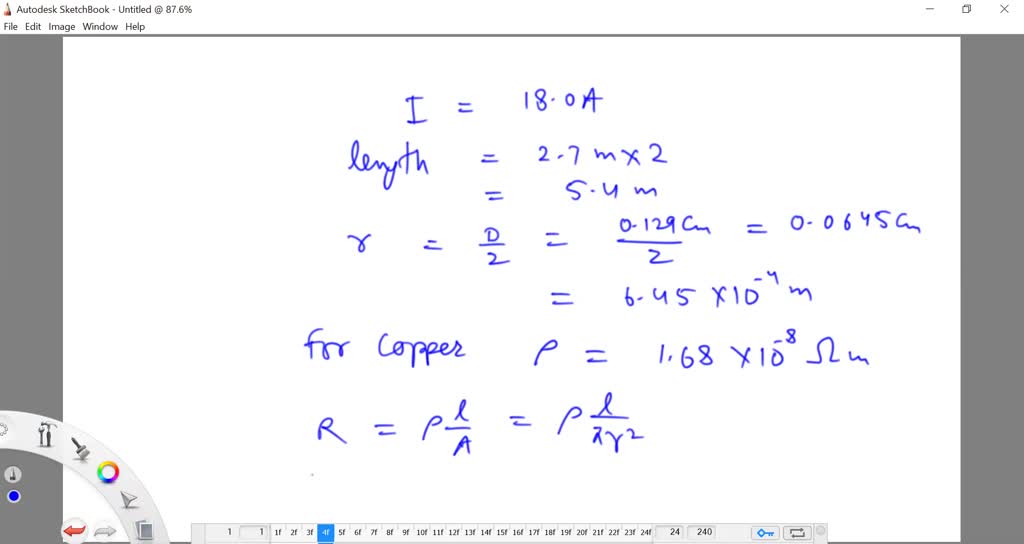 Autodesk SketchBook - Untitled @ 87.6%
File Edit Image Window Help
I = 18.0A
length = 2.7 m x 2
= 5.4 m
r = D/2 = 0.129 Cm/2 = 0.0645 Cm
= 6.45 x 10⁻⁴ m
for Copper ρ = 1.68 x 10⁻⁸ Ω m
R = ρ l/A = ρ l/πr²
1 1 1f 2f 3f 4f 5f 6f 7f 8f 9f 10f 11f 12f 13f 14f 15f 16f 17f 18f 19f 20f 21f 22f 23f 24f 24 240